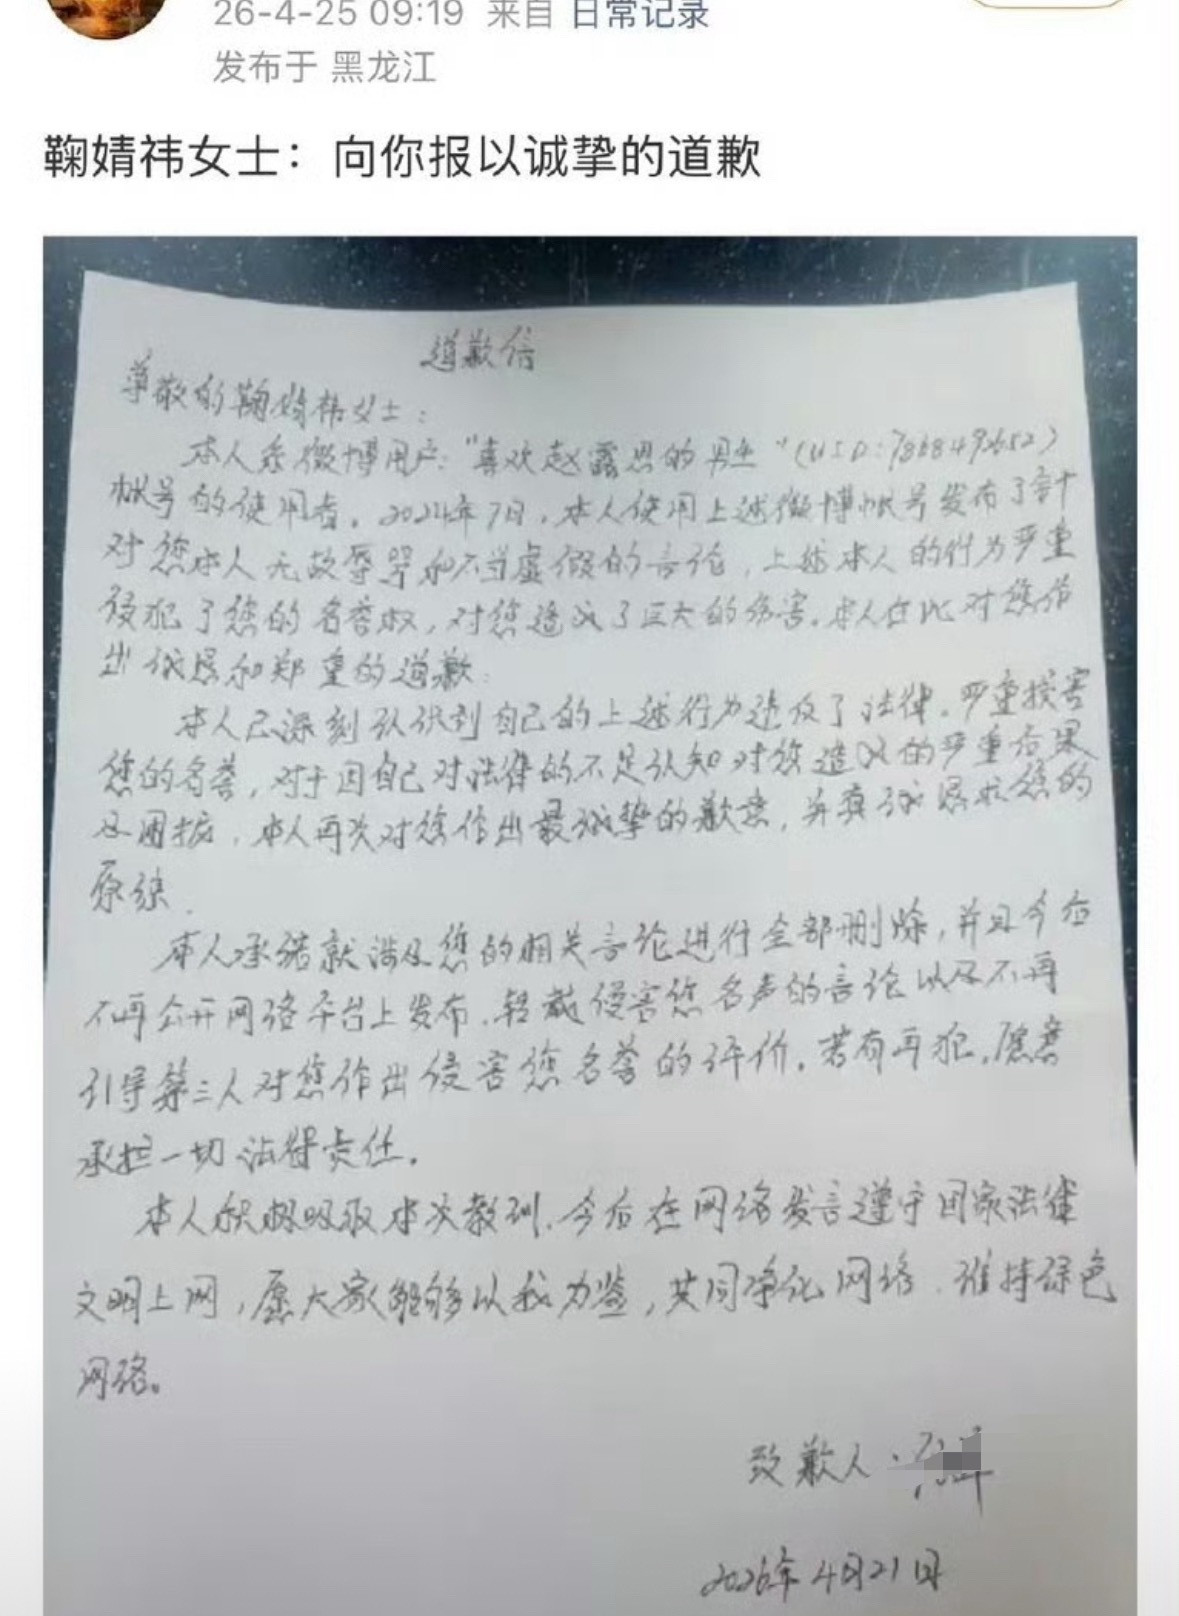 26-4-25 09:19 来自 日常记录
发布于 黑龙江
鞠婧祎女士：向你报以诚挚的道歉
道歉信
尊敬的鞠婧祎女士：
本人系微博用户："喜欢赵露思的男生"(USD:7868492652)
帐号的使用者。2024年7月，本人使用上述微博帐号发布了针
对您本人无故辱骂和不当虚假的言论，上述本人的行为严重
侵犯了您的名誉权，对您造成了巨大的伤害。本人在此对您作
出诚恳和郑重的道歉。
本人已深刻认识到自己的上述行为违反了法律，严重损害
您的名誉，对于因自己对法律的不足认知对您造成的严重后果
及困扰，本人再次对您作出最诚挚的歉意，并真诚恳求您的
原谅.
本人承诺就涉及您的相关言论进行全部删除，并且今后
不再公开网络平台上发布、转载侵害您名声的言论以及不再
引导第三人对您作出侵害您名誉的评价。若有再犯，愿意
承担一切法律责任。
本人积极吸取本次教训，今后在网络发言遵守国家法律
文明上网，愿大家能够以我为鉴，共同净化网络、维持绿色
网络。
致歉人：
2026年4月21日